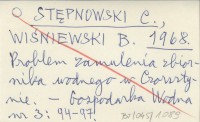 STĘPNOWSKI C.,
WIŚNIEWSKI B. 1968.
Problem zamulenia zbior-
nika wodnego w Czorszty-
nie. - Gospodarka Wodna
nr 3: 94-97.